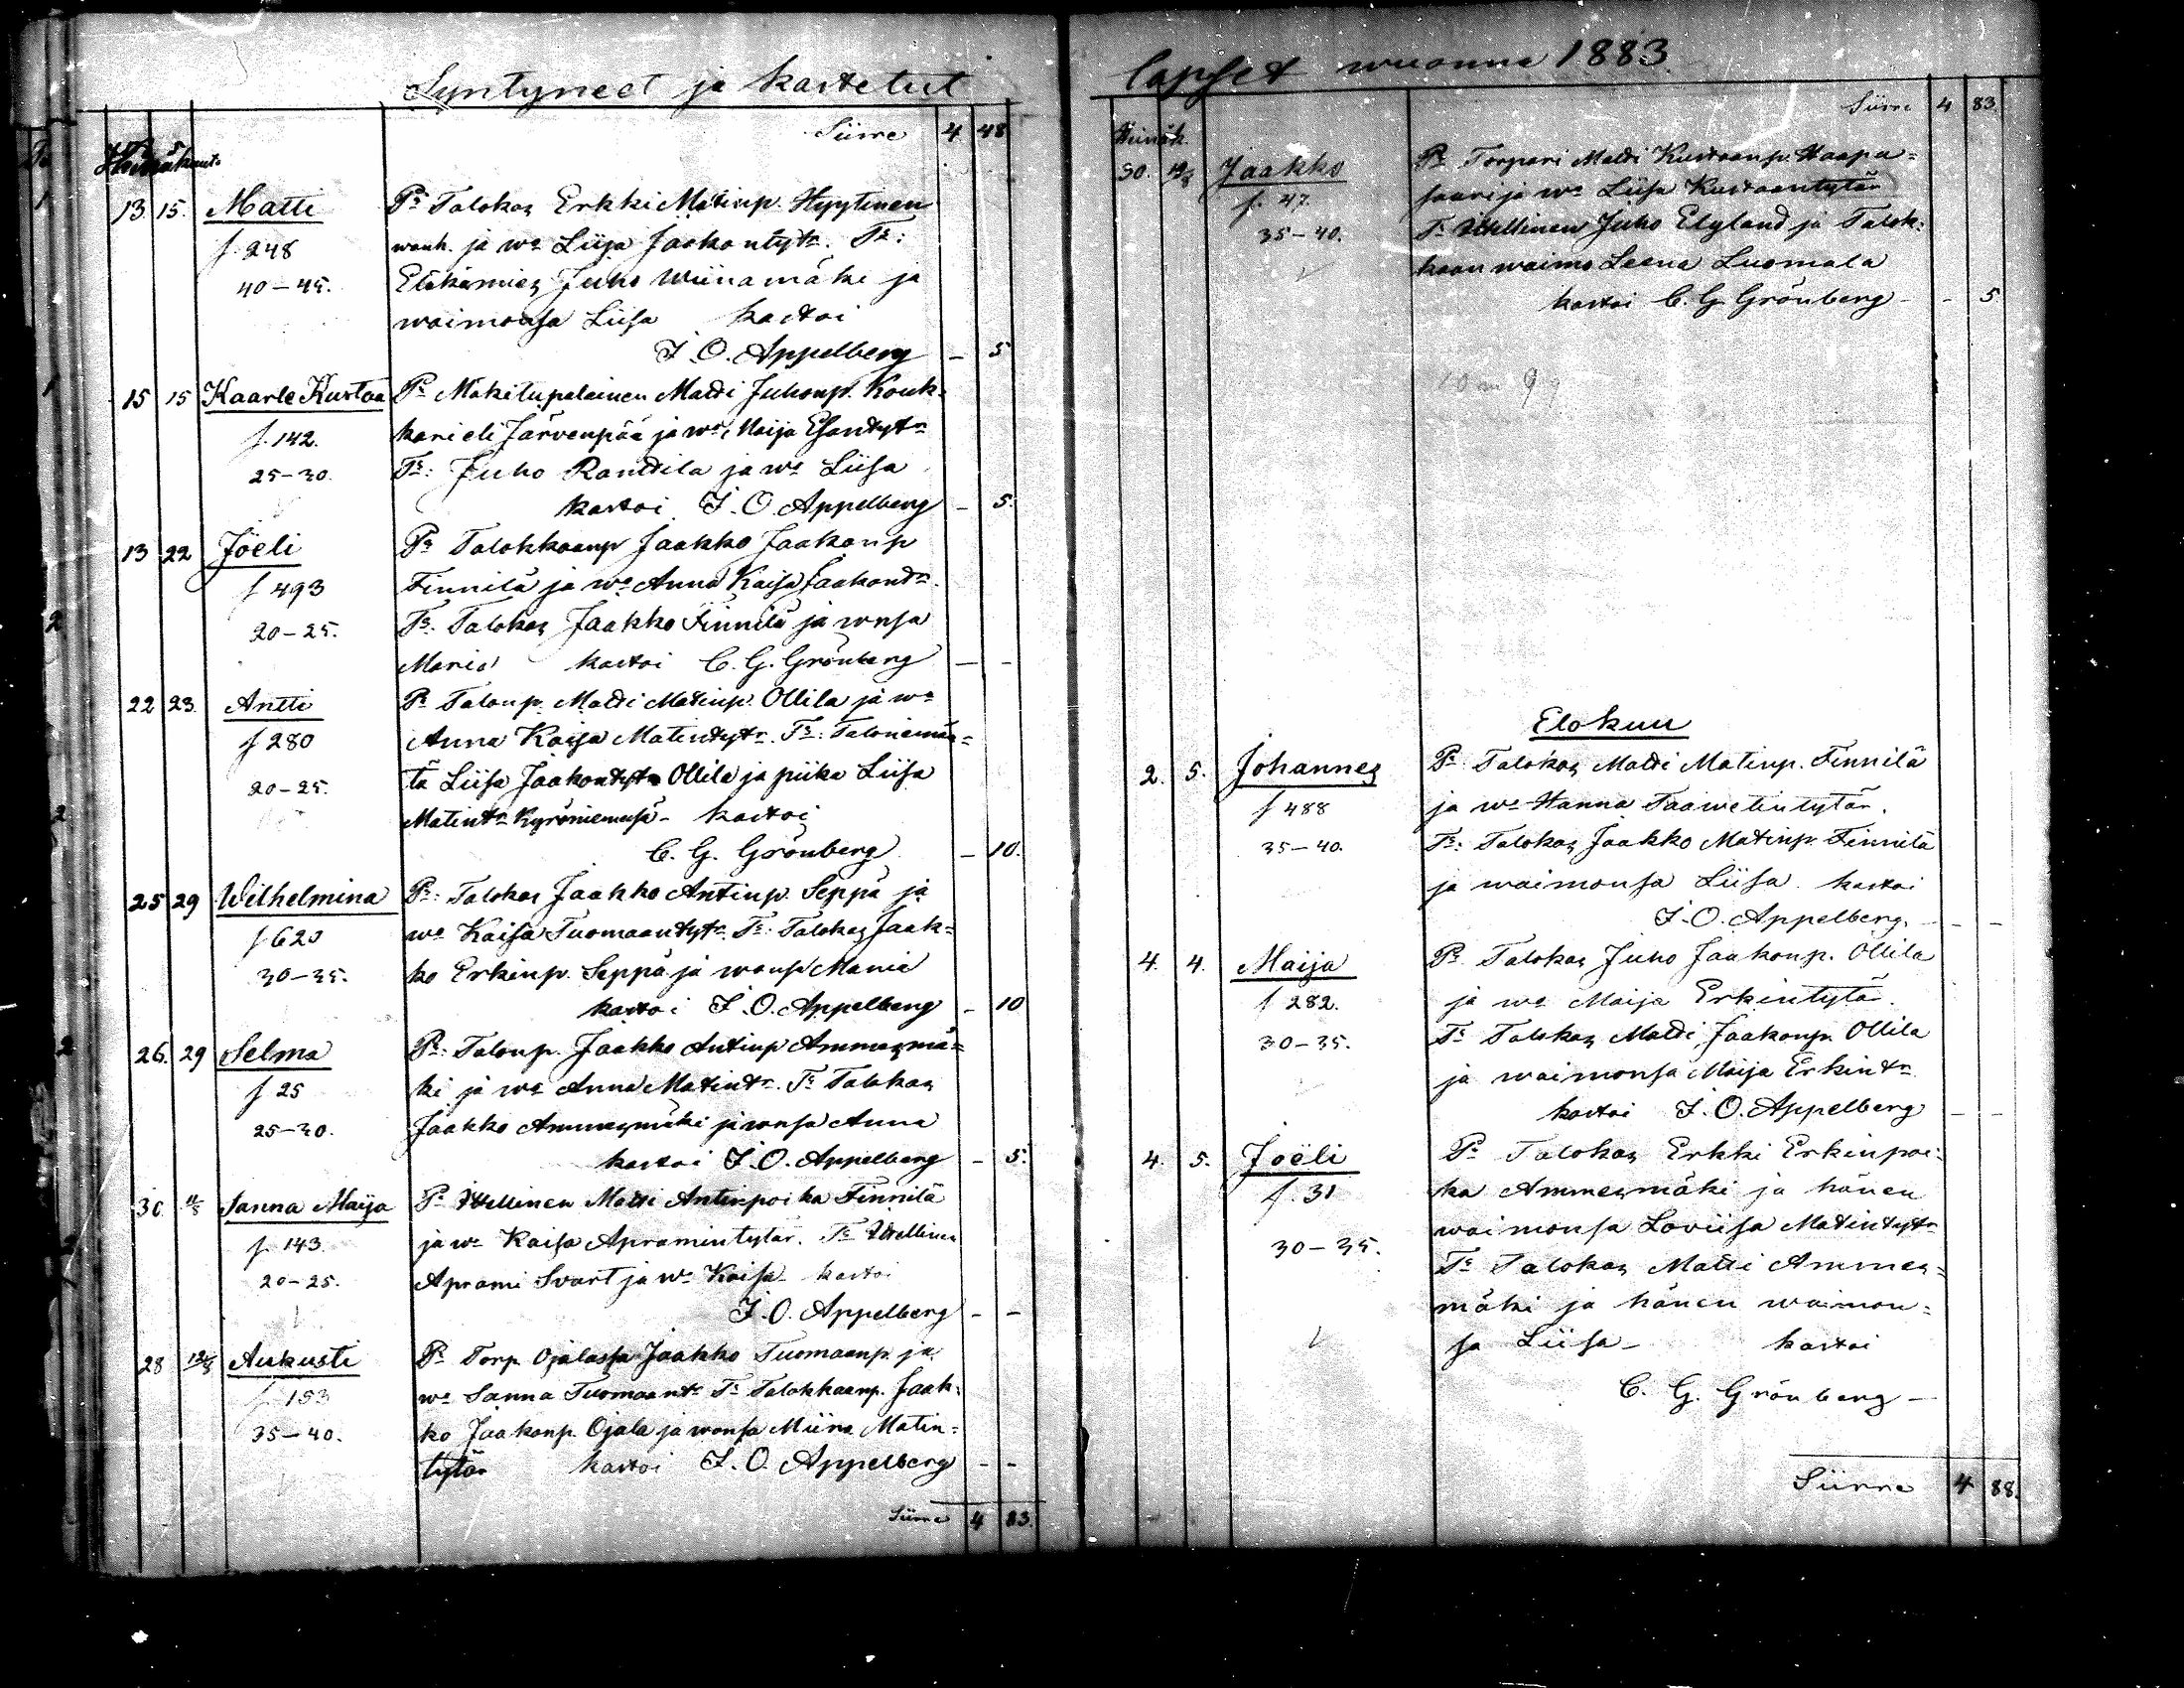 Syntyneet ja kastetut
Siirre 4 48
Heinäkuu
13. 15. Matti Pr Talokas Erkki Matinp. Hyytinen
f. 248 wanh. ja wo Liisa Jaakontytr. Tr:
40-45. Eläkämies Juho Wiinamäki ja
waimonsa Liisa kastoi
I. O. Appelberg - 5
15 15 Kaarle Kustaa Pr Mäkitupalainen Matti Juhonp. Kouk=
f. 142. kari eli Järvenpää ja wo Maija Esantytr
25-30. Tr: Juho Rantila ja wo Liisa
kastoi I. O. Appelberg - 5.
13 22 Joëli Pr Talokkaanp Jaakko Jaakonp
f 493 Finnilä ja wo Anna Kaisa Jaakontr.
20-25. Tr. Talokas Jaakko Finnilä ja wnsa
Maria kastoi C. G. Grönberg - -
22 23. Antti Pr Talonp. Matti Matinp. Ollila ja wo
f 280 Anna Kaisa Matintytr. Tr: Taloniemän=
20-25. tä Liisa Jaakontytr Ollila ja piika Liisa
Matintr Kyröniemesä - kastoi
C. G. Grönberg - 10.
25 29 Wilhelmina Pr: Talokas Jaakko Antinp. Seppä ja
f 620 wo Kaisa Tuomaantytr. Tr: Talokas Jaak=
30-35. ko Erkinp. Seppä ja wonsa Maria
kastoi I. O. Appelberg - 10
26. 29 Selma Pr: Talonp. Jaakko Antinp Ammesmä=
f 25 ki ja wo Anna Matintr. Tr Talokas
25-30. Jaakko Ammesmäki ja wnsa Anna
kastoi I. O. Appelberg - 5.
30. Sanna Maija Pr Itsellinen Matti Antinpoika Finnilä
f. 143. ja wo Kaisa Apramintytär. Tr Itsellinen
20-25. Aprami Svart ja wo Kaisa kastoi
I. O. Appelberg - -
28 12/8 Aukusti Pr Torp. Ojalassa Jaakko Tuomaanp. ja
f. 153 wo Sanna Tuomaantr Tr Talokkaanp. Jaak=
35-40. ko Jaakonp. Ojala ja wonsa Miina Matin=
tytär kastoi I. O. Appelberg - -
Siirre 4 83.
lapset wuonna 1883.
Siirre 4 83.
Heinäk.
30. 12/8 Jaakko Pr Torpari Matti Kustaanp. Haapa=
f. 47. saari ja wo Liisa Kustaantytär
35-40. Tr Itsellinen Juho Elgland ja Talok=
kaan waimo Leena Luomala
kastoi C. G. Grönberg - - 5
Elokuu
2. 5. Johannes Pr Talokas Matti Matinp. Finnilä
f 488 ja wo Hanna Taawetintytär.
35-40. Tr: Talokas Jaakko Matinp. Finnilä
ja waimonsa Liisa. kastoi
I. O. Appelberg. - -
4. 4. Maija Pr. Talokas Juho Jaakonp. Ollila
f 282. ja wo Maija Erkintytär.
30-35. Tr Talokas Matti Jaakonp. Ollila
ja waimonsa Maija Erkintr
kastoi I. O. Appelberg - -
4. 5. Joëli Pr Talokas Erkki Erkinpoi=
f. 31 ka Ammesmäki ja hänen
waimonsa Loviisa Matintytr
30-35. Tr Talokas Matti Ammes=
mäki ja hänen waimon=
sa Liisa - kastoi
C. G. Grönberg -
Siirre 4 88.